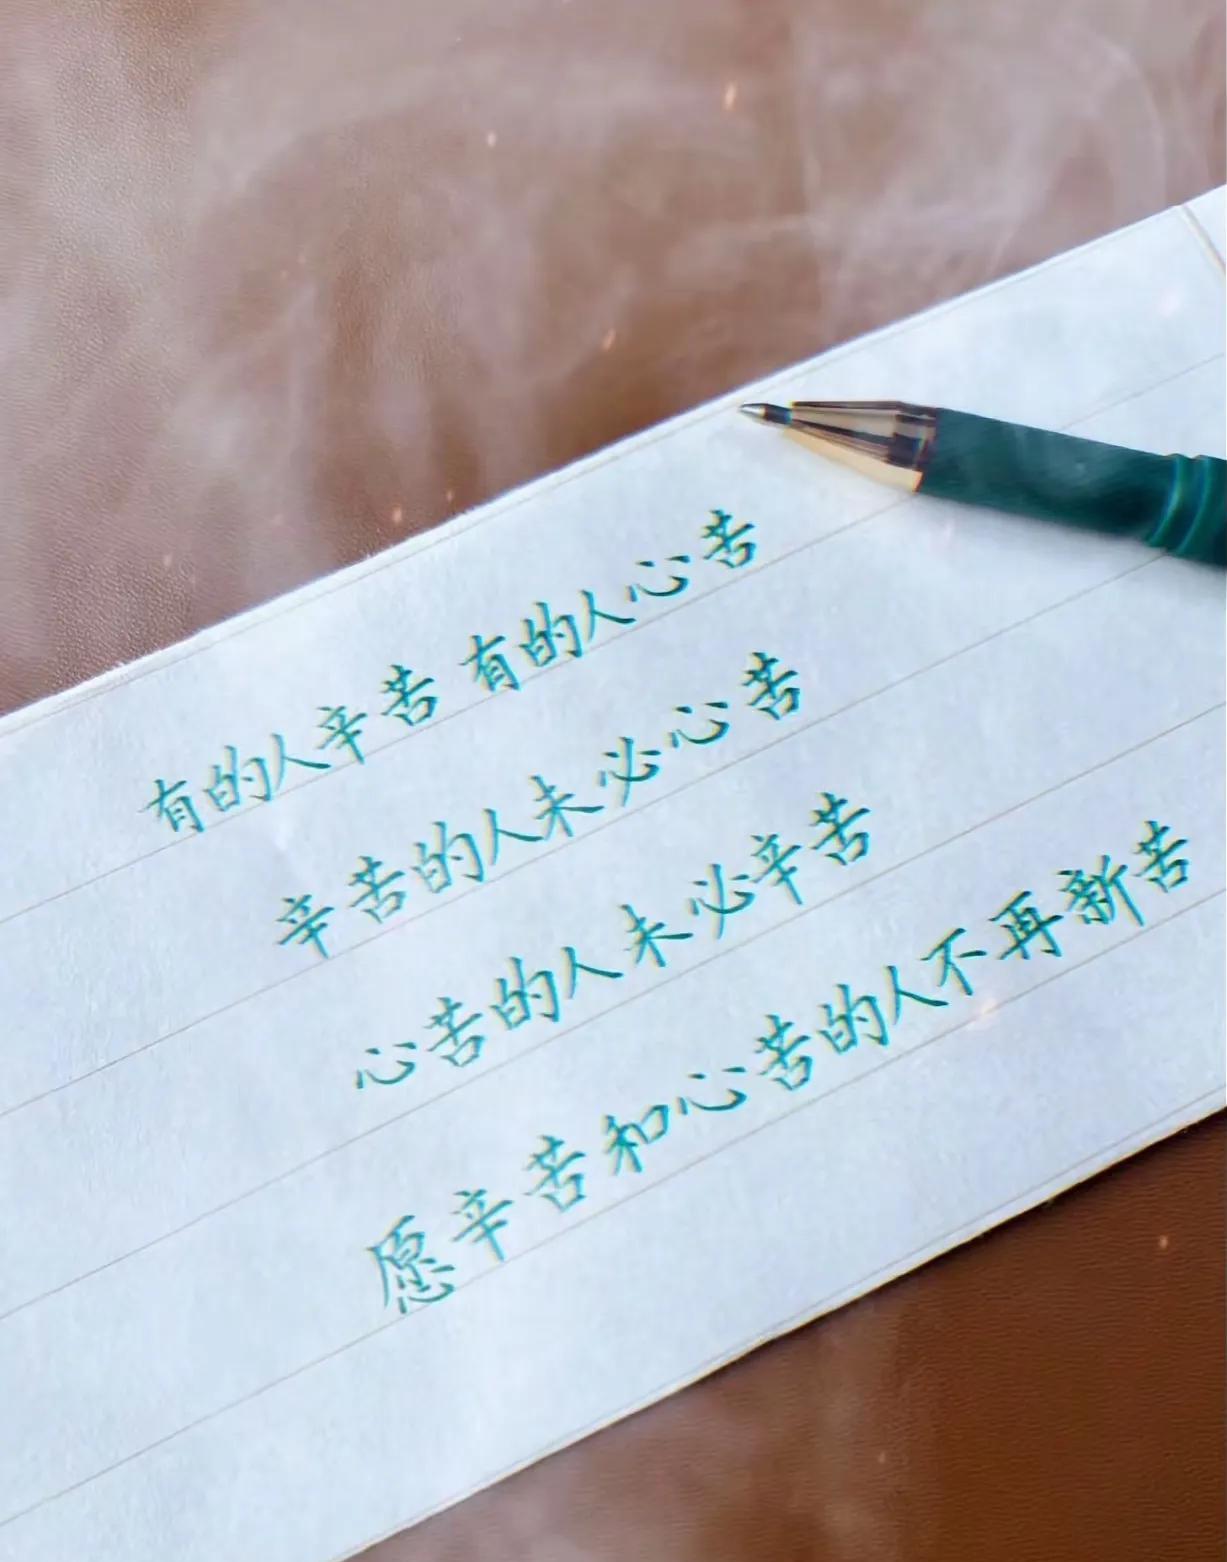 有的人辛苦 有的人心苦
辛苦的人未必心苦
心苦的人未必辛苦
愿辛苦和心苦的人不再新苦